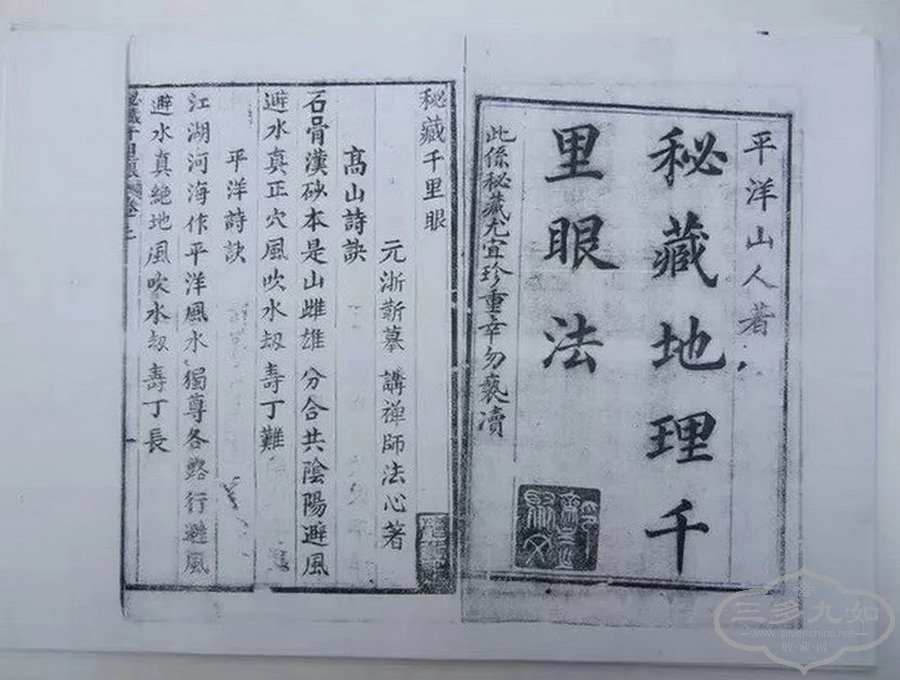 平洋山人著
秘藏地理千
里眼法
此係秘藏尤宜珍重幸勿褻瀆
秘藏千里眼
元浙蕲摹講禅師法心著
髙山詩訣
石骨漢砂本是山雌雄分合共陰陽避風
避水真正穴風吹水刼壽丁難
平洋詩訣
江湖河海作平洋風水獨尊各路行避風
避水真絶地風吹水刼壽丁長
三多九如
www.silver-china.net
收藏网